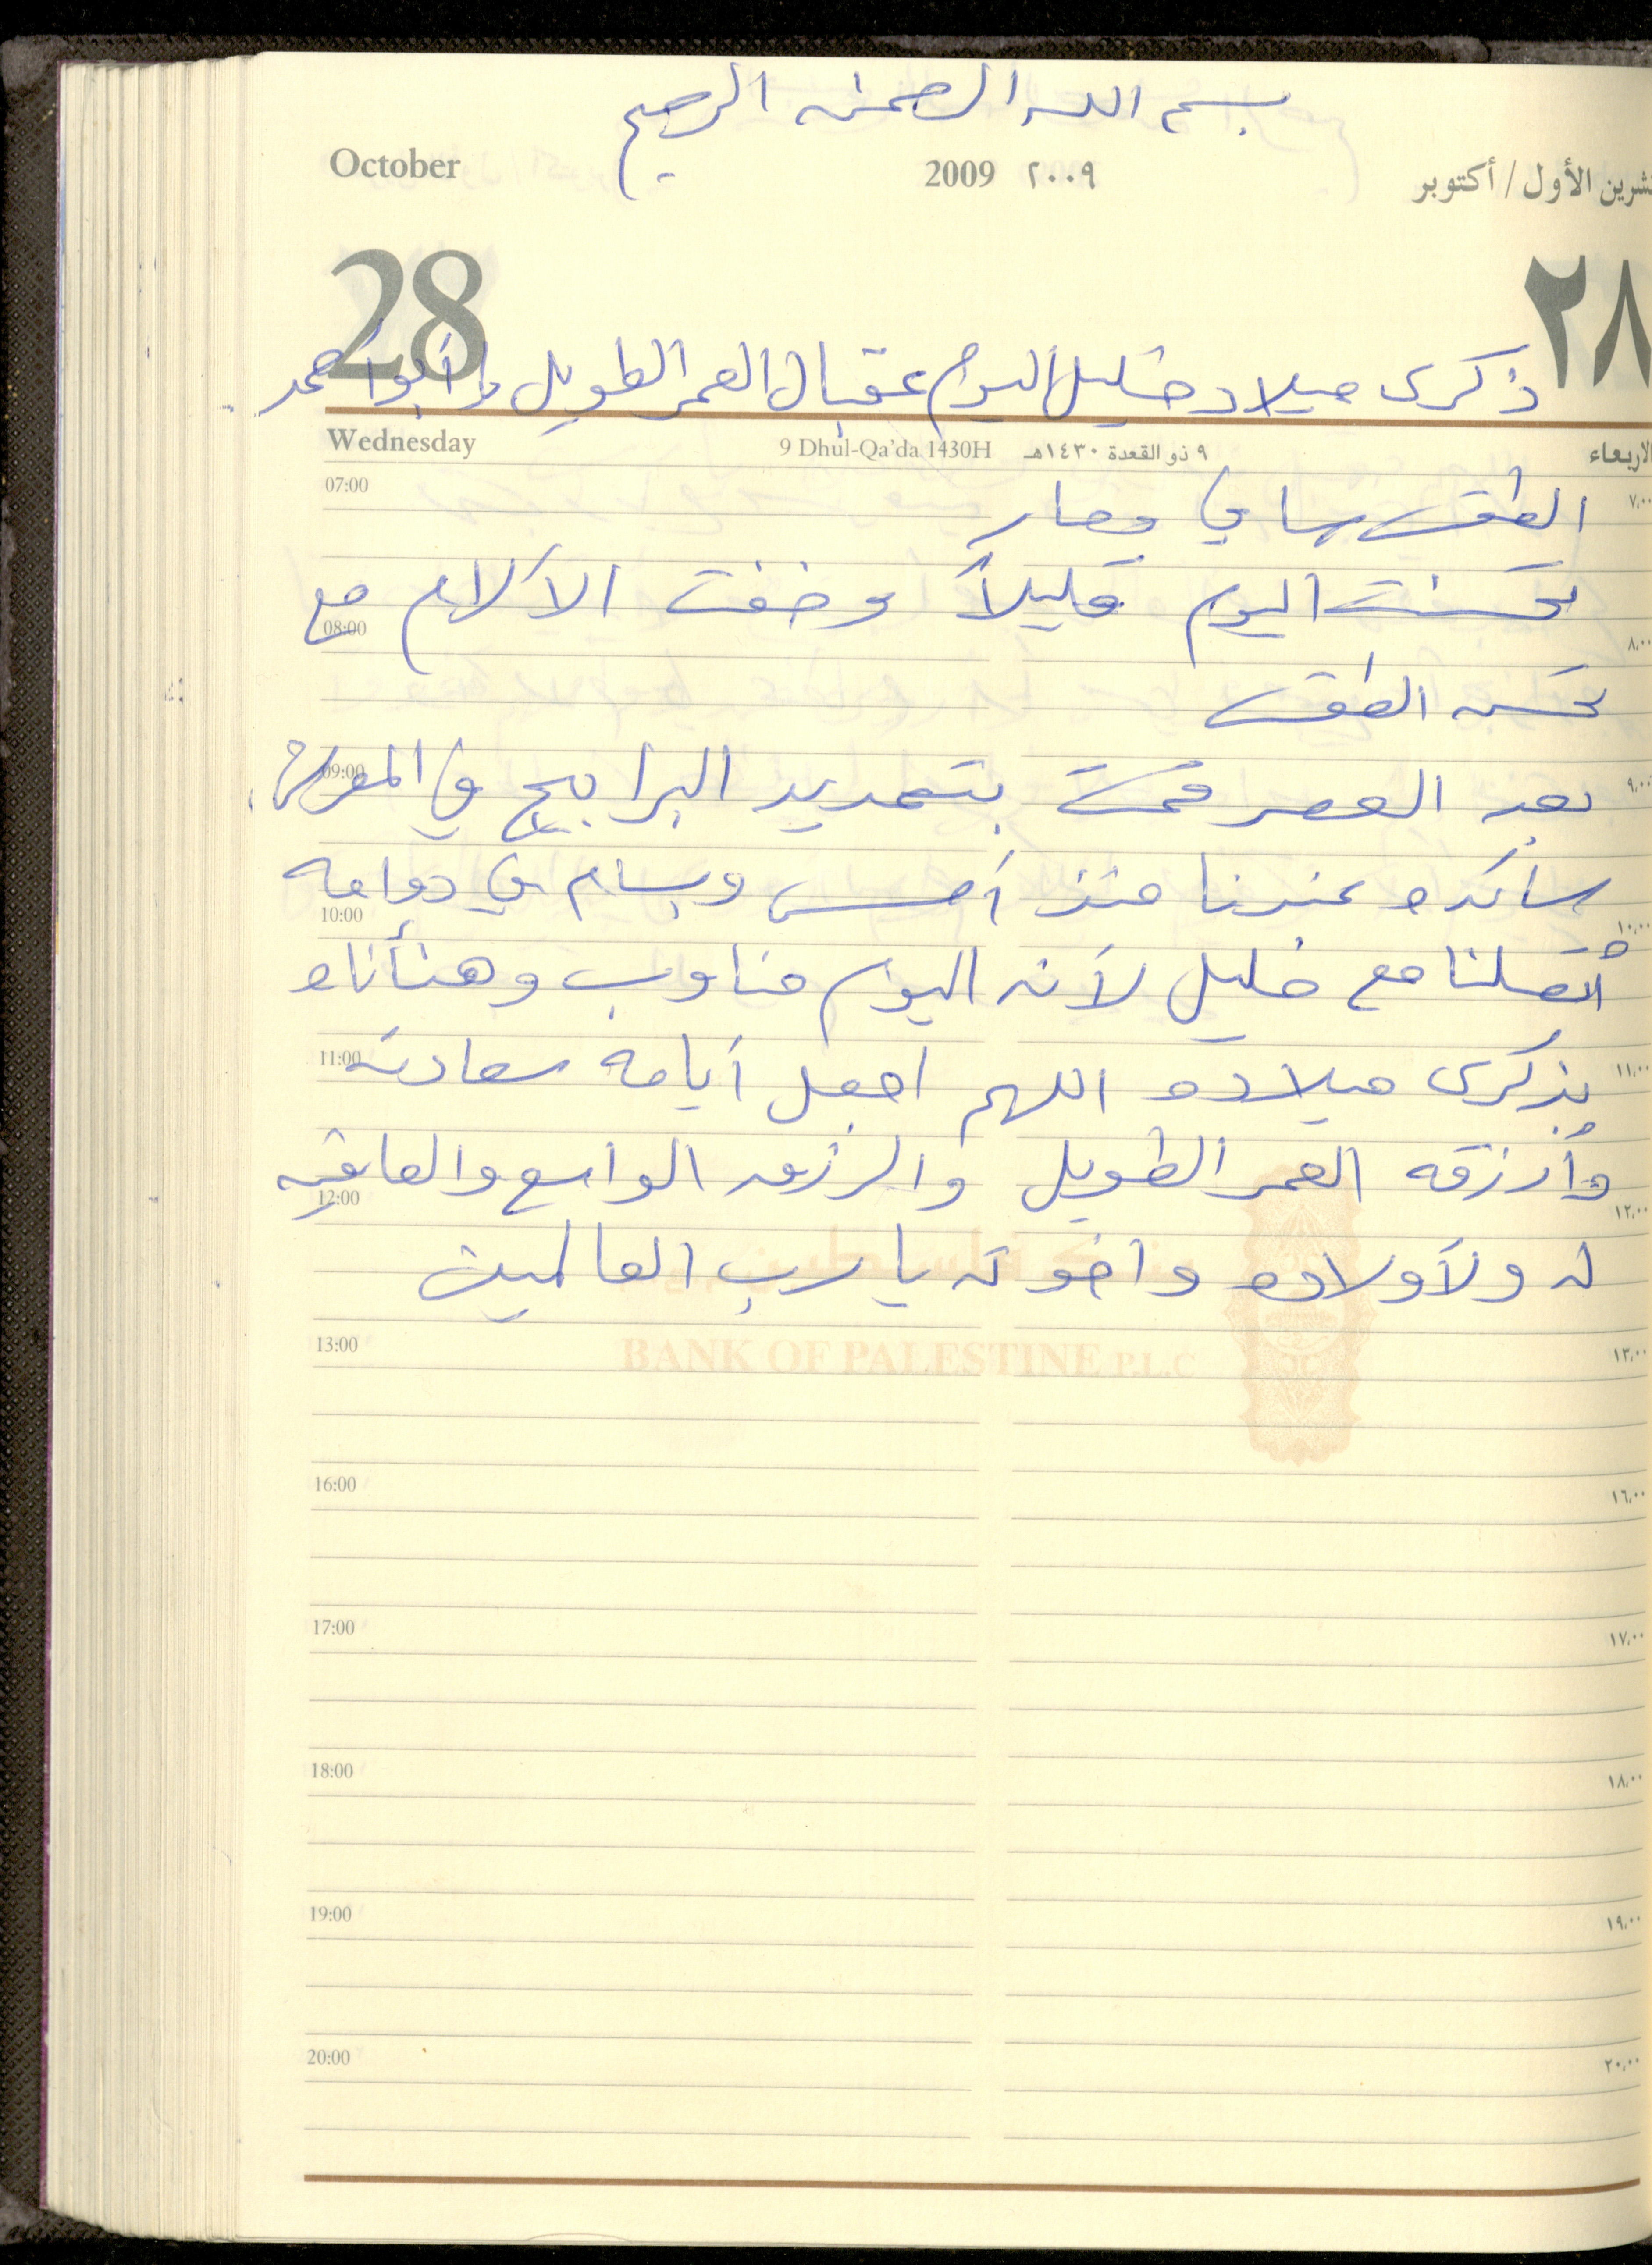 بسم الله الرحمن الرحيم
October 2009 ٢٠٠٩ تشرين الأول / أكتوبر
28 ٢٨
ذكرى ميلاد خليل اليوم عقبال العمر الطويل يا أبو أحمد
Wednesday 9 Dhul-Qa'da 1430H ٩ ذو القعدة ١٤٣٠هـ الاربعاء
07:00 ٧,٠٠
الطقس صافي وحار
تحسنت اليوم قليلاً وخفت الآلام مع
08:00 ٨,٠٠
تحسن الطقس
09:00 ٩,٠٠
بعد العصر قمت بتمديد البرابيج في المعرش
سائده عندنا منذ أمس وبسام في دوامه
10:00 ١٠,٠٠
أتصلنا مع خليل لأنه اليوم مناوب وهنأناه
11:00 ١١,٠٠
بذكرى ميلاده اللهم اجعل أيامه سعادته
وأرزقه العمر الطويل والرزق الواسع والعافيه
12:00 ١٢,٠٠
له ولأولاده واخوته يا رب العالمين
بنك فلسطين
BANK OF PALESTINE P.L.C
13:00 ١٣,٠٠
16:00 ١٦,٠٠
17:00 ١٧,٠٠
18:00 ١٨,٠٠
19:00 ١٩,٠٠
20:00 ٢٠,٠٠